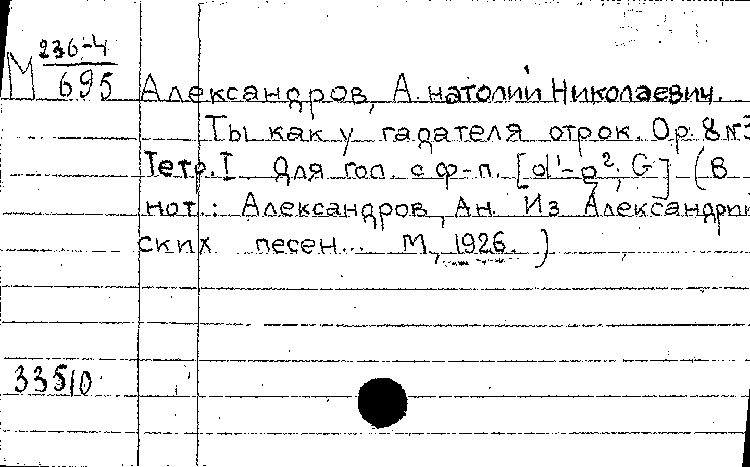 М 236-4/695
Александров, Анатолий Николаевич.
Ты как у гадателя отрок. Op. 8 №3
Тетр. I Для гол. с ф-п. [d¹-g²; G] (В
нот.: Александров, Ан. Из Александрий
ских песен... М., 1926.)
33510